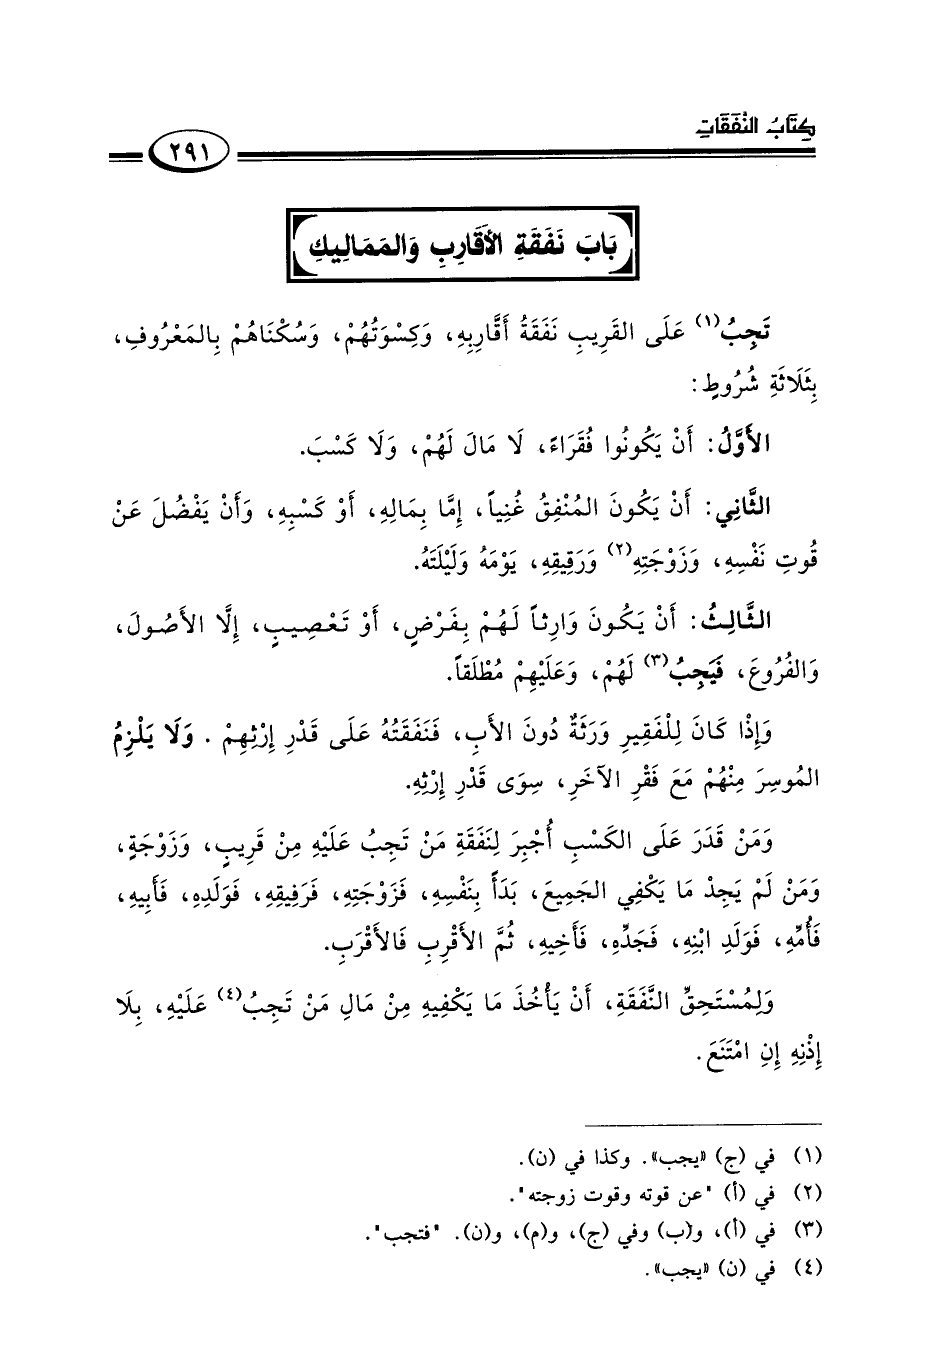 كِتَابُ النَّفَقَاتِ
٢٩١
بَابَ نَفَقَةِ الأَقَارِبِ وَالمَمَالِيكِ
تَجِبُ(١) عَلَى القَرِيبِ نَفَقَةُ أَقَّارِبِهِ، وَكِسْوَتُهُمْ، وَسُكْنَاهُمْ بِالمَعْرُوفِ،
بِثَلَاثَةِ شُرُوطٍ:
الأَوَّلُ: أَنْ يَكُونُوا فُقَرَاءً، لَا مَالَ لَهُمْ، وَلَا كَسْبَ.
الثَّانِي: أَنْ يَكُونَ المُنْفِقُ غُنِياً، إِمَّا بِمَالِهِ، أَوْ كَسْبِهِ، وَأَنْ يَفْضُلَ عَنْ
قُوتِ نَفْسِهِ، وَزَوْجَتِهِ(٢) وَرَقِيقِهِ، يَوْمَهُ وَلَيْلَتَهُ.
الثَّالِثُ: أَنْ يَكُونَ وَارِثاً لَهُمْ بِفَرْضٍ، أَوْ تَعْصِيبٍ، إِلَّا الأَصُولَ،
وَالفُرُوعَ، فَيَجِبُ(٣) لَهُمْ، وَعَلَيْهِمْ مُطْلَقاً.
وَإِذْا كَانَ لِلْفَقِيرِ وَرَثَةٌ دُونَ الأَبِ، فَنَفَقَتُهُ عَلَى قَدْرِ إِرْثِهِمْ . وَلَا يَلْزِمُ
المُوسِرَ مِنْهُمْ مَعَ فَقْرِ الآخَرِ، سِوَى قَدْرِ إِرْثِهِ.
وَمَنْ قَدَرَ عَلَى الكَسْبِ أُجْبِرَ لِنَفَقَةِ مَنْ تَجِبُ عَلَيْهِ مِنْ قَرِيبٍ، وَزَوْجَةٍ،
وَمَنْ لَمْ يَجِدْ مَا يَكْفِي الجَمِيعَ، بَدَأَ بِنَفْسِهِ، فَزَوْجَتِهِ، فَرَفِيقِهِ، فَوَلَدِهِ، فَأَبِيهِ،
فَأُمِّهِ، فَوَلَدِ ابْنِهِ، فَجَدِّهِ، فَأَخِيهِ، ثُمَّ الأَقْرِبِ فَالأَقْرَبِ.
وَلِمُسْتَحِقِّ النَّفَقَةِ، أَنْ يَأْخُذَ مَا يَكْفِيهِ مِنْ مَالِ مَنْ تَجِبُ(٤) عَلَيْهِ، بِلَا
إِذْنِهِ إِنِ امْتَنَعَ.
(١) في (ج) «يجب». وكذا في (ن).
(٢) في (أ) "عن قوته وقوت زوجته".
(٣) في (أ)، و(ب) وفي (ج)، و(م)، و(ن). "فتجب".
(٤) في (ن) «يجب».